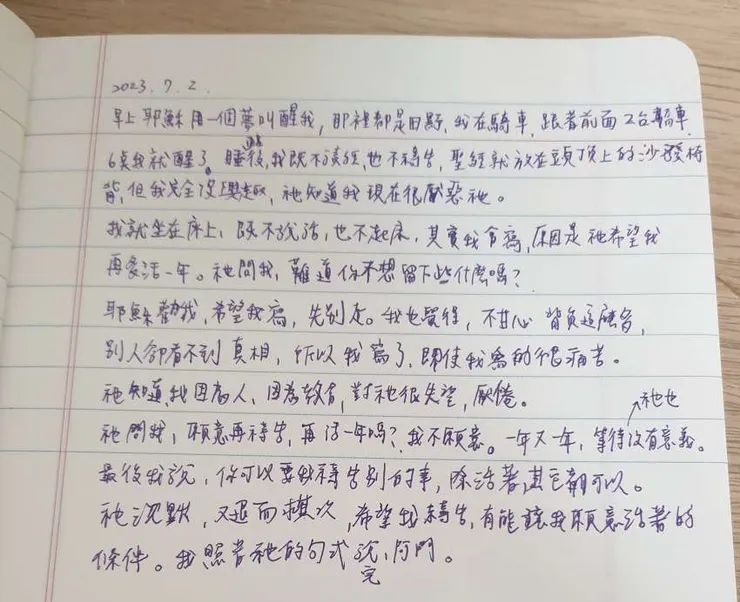 2023.7.2.
早上耶穌用一個夢叫醒我,那裡都是田野,我在騎車,跟着前面2台轎車
6点我就醒了。睡後,我既不讀經,也不禱告,聖經就放在頭頂上的沙發椅
背,但我完全沒興趣,祂知道我現在很厭惡祂。
我就坐在床上,既不說話,也不起床,其實我會寫,原因是祂希望我
再多活一年。祂問我,難道你不想留下些什麼嗎?
耶穌勸我,希望我寫,先別走。我也覺得,不甘心背負這聲音,
別人卻看不到真相,所以我寫了,即使我寫的很痛苦。
祂知道,我因為人,因為教育,對祂很失望,厭倦。
祂也
祂問我,願意再禱告,再活一年嗎?我不願意。一年又一年,等待沒有意義。
最後我說,你可以要我禱告別的事,除活著其它都可以。
祂沉默,又退而其次,希望我禱告,有能讓我願意活著的
條件。我照著祂的句式說,阿門。
完